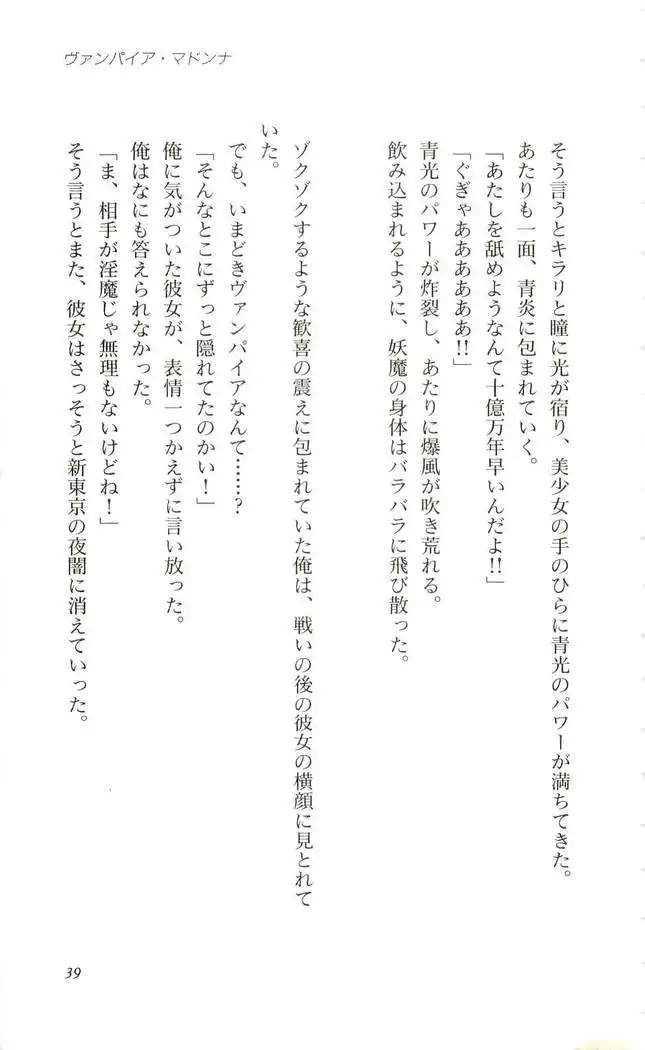 ヴァンパイア・マドンナ
そう言うとキラリと瞳に光が宿り、美少女の手のひらに青光のパワーが満ちてきた。
あたりも一面、青炎に包まれていく。
「あたしを舐めようなんて十億万年早いんだよ!!」
「ぐぎゃああああああ!!」
青光のパワーが炸裂し、あたりに爆風が吹き荒れる。
飲み込まれるように、妖魔の身体はバラバラに飛び散った。
ゾクゾクするような歓喜の震えに包まれていた俺は、戦いの後の彼女の横顔に見とれて
いた。
でも、いまどきヴァンパイアなんて……?
「そんなとこにずっと隠れてたのかい！」
俺に気がついた彼女が、表情一つかえずに言い放った。
俺はなにも答えられなかった。
「ま、相手が淫魔じゃ無理もないけどね！」
そう言うとまた、彼女はさっそうと新東京の夜闇に消えていった。
39